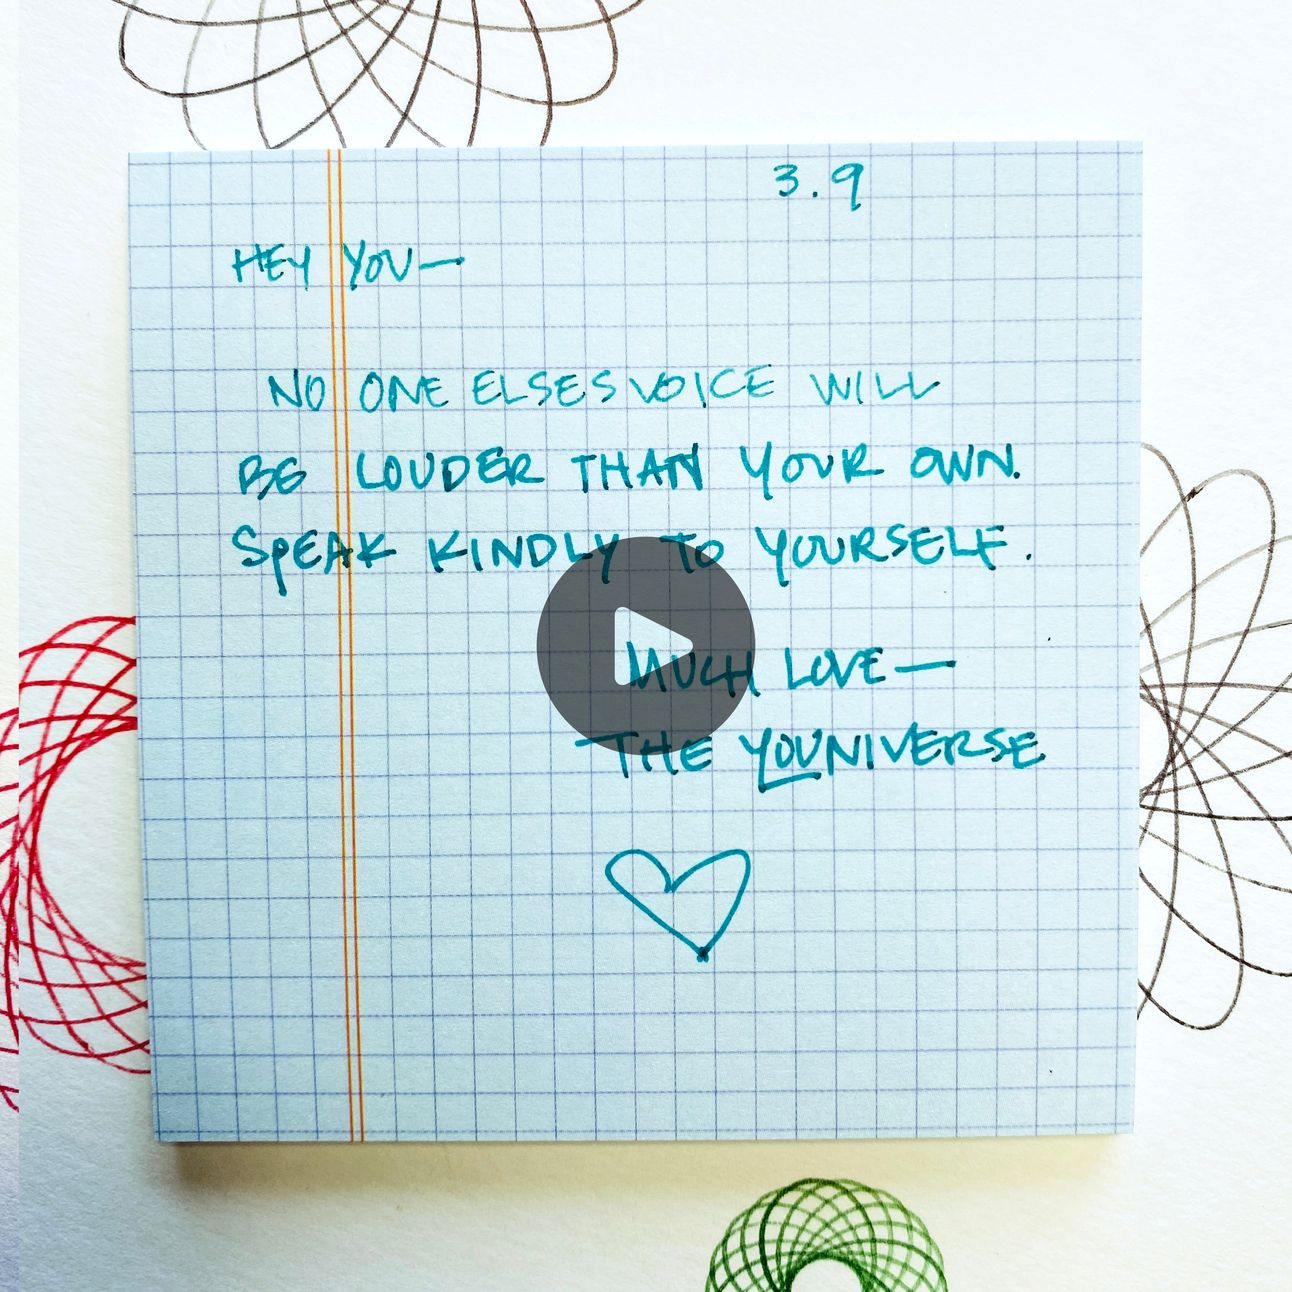 3.9
HEY YOU—
NO ONE ELSES VOICE WILL
BE LOUDER THAN YOUR OWN.
SPEAK KINDLY TO YOURSELF.
MUCH LOVE—
THE YOUNIVERSE